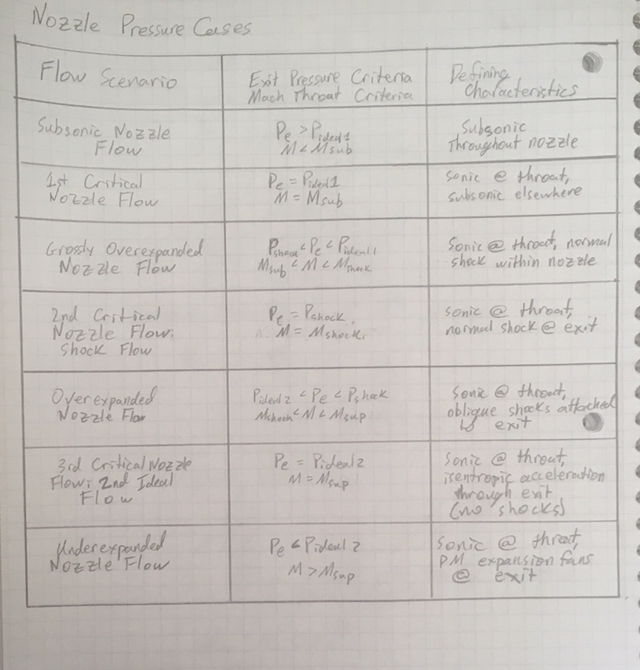 Nozzle Pressure Cases
Flow Scenario
Exit Pressure Criteria
Mach Throat Criteria
Defining
Characteristics
Subsonic Nozzle
Flow
Pe > Pideal1
M < Msub
Subsonic
throughout nozzle
1st Critical
Nozzle Flow
Pe = Pideal1
M = Msub
sonic @ throat,
subsonic elsewhere
Grossly Overexpanded
Nozzle Flow
Pshock < Pe < Pideal1
Msub < M < Mshock
Sonic @ throat, normal
shock within nozzle
2nd Critical
Nozzle Flow:
Shock Flow
Pe = Pshock
M = Mshock
sonic @ throat,
normal shock @ exit
Overexpanded
Nozzle Flow
Pideal2 < Pe < Pshock
Mshock < M < Msup
Sonic @ throat,
oblique shocks attached
to exit
3rd Critical Nozzle
Flow: 2nd Ideal
Flow
Pe = Pideal2
M = Msup
Sonic @ throat,
isentropic acceleration
through exit
(no shocks)
Underexpanded
Nozzle Flow
Pe < Pideal2
M > Msup
Sonic @ throat,
PM expansion fans
@ exit